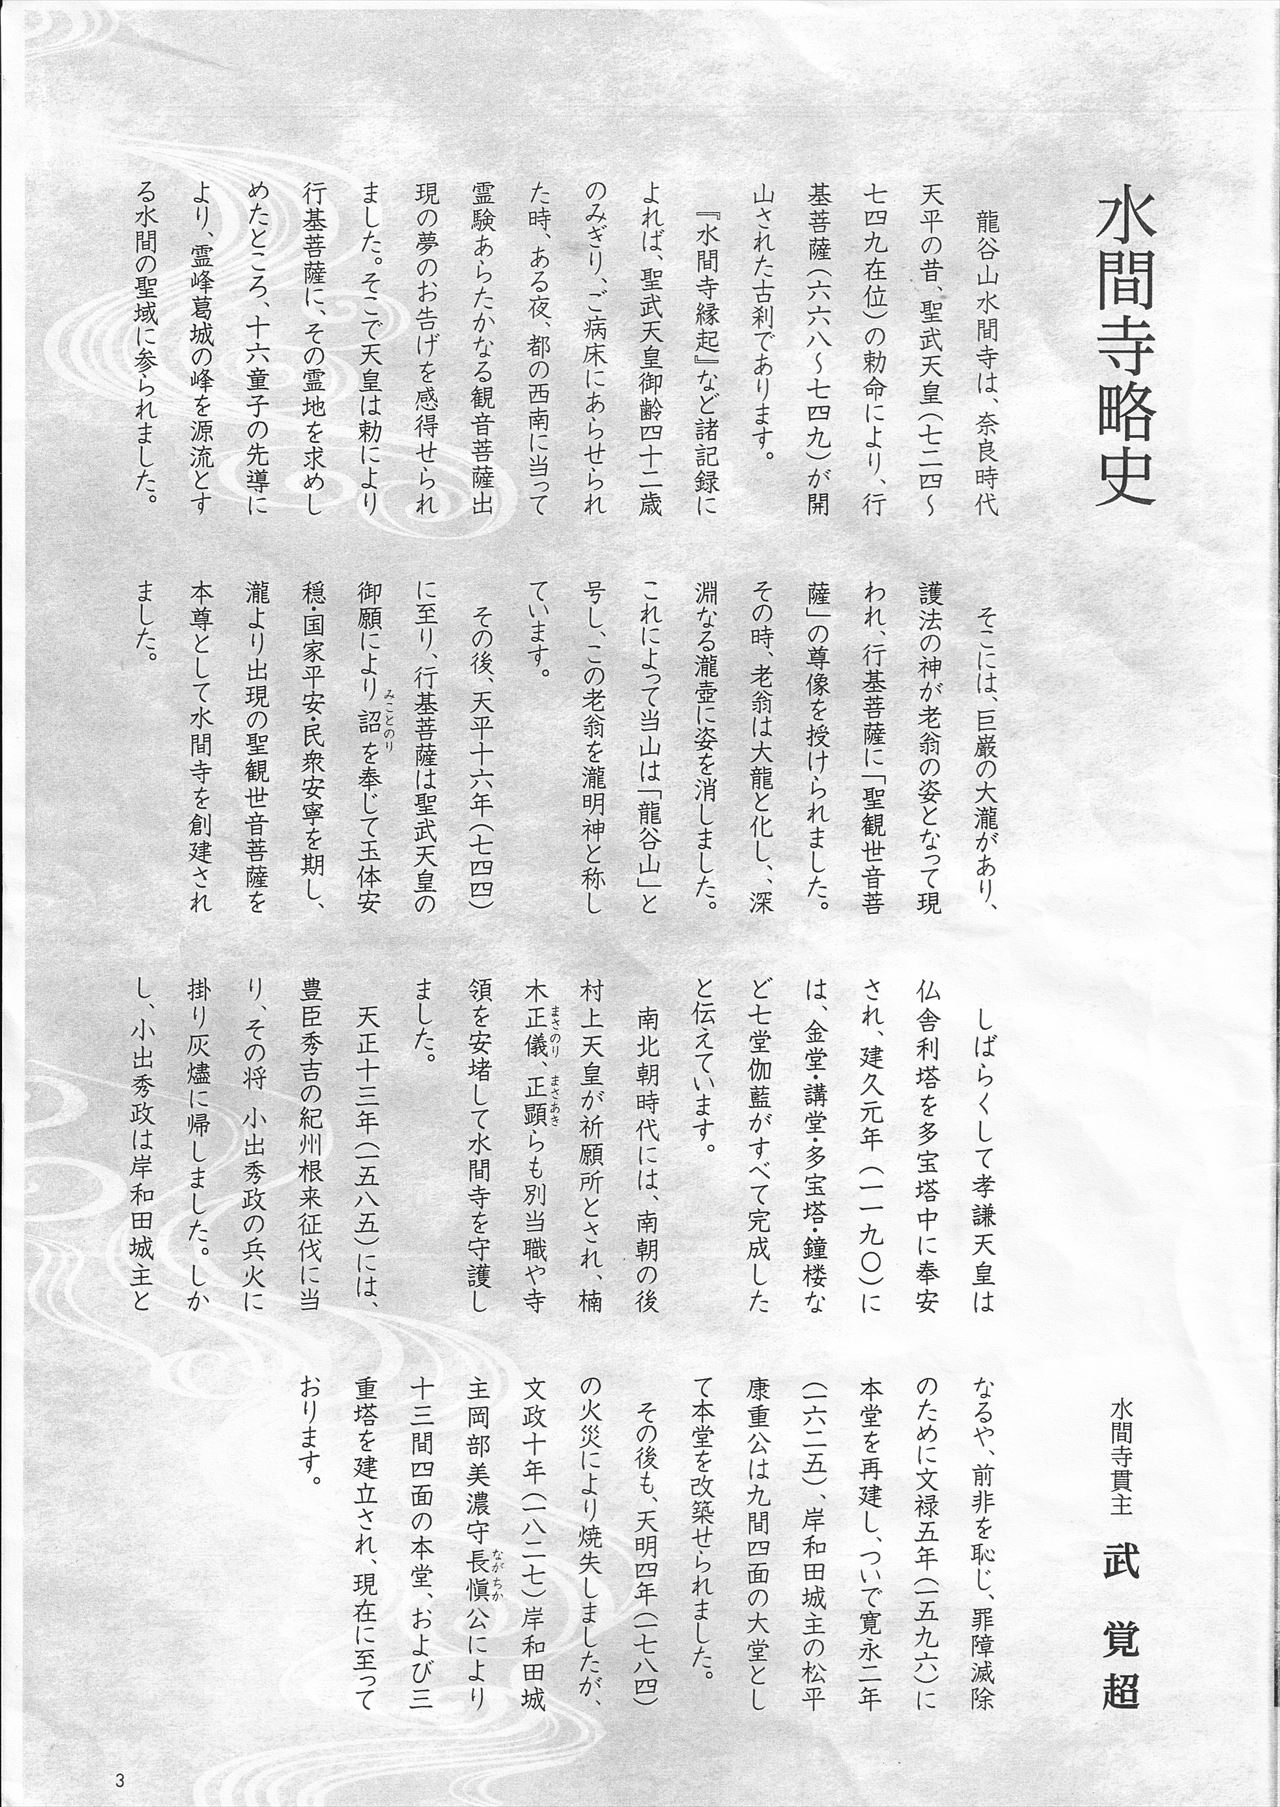 水間寺略史
水間寺貫主 武 覚 超
龍谷山水間寺は、奈良時代
天平の昔、聖武天皇(七二四〜
七四九在位)の勅命により、行
基菩薩(六六八〜七四九)が開
山された古刹であります。
『水間寺縁起』など諸記録に
よれば、聖武天皇御齢四十二歳
のみぎり、ご病床にあらせられ
た時、ある夜、都の西南に当って
霊験あらたかなる観音菩薩出
現の夢のお告げを感得せられ
ました。そこで天皇は勅により
行基菩薩に、その霊地を求めし
めたところ、十六童子の先導に
より、霊峰葛城の峰を源流とす
る水間の聖域に参られました。
そこには、巨巌の大瀧があり、
護法の神が老翁の姿となって現
われ、行基菩薩に「聖観世音菩
薩」の尊像を授けられました。
その時、老翁は大龍と化し、、深
淵なる瀧壺に姿を消しました。
これによって当山は「龍谷山」と
号し、この老翁を瀧明神と称し
ています。
その後、天平十六年(七四四)
に至り、行基菩薩は聖武天皇の
御願により詔みことのりを奉じて玉体安
穏・国家平安・民衆安寧を期し、
瀧より出現の聖観世音菩薩を
本尊として水間寺を創建され
ました。
しばらくして孝謙天皇は
仏舎利塔を多宝塔中に奉安
され、建久元年(一一九〇)に
は、金堂・講堂・多宝塔・鐘楼な
ど七堂伽藍がすべて完成した
と伝えています。
南北朝時代には、南朝の後
村上天皇が祈願所とされ、楠
木正儀まさのり、正顕まさあきらも別当職や寺
領を安堵して水間寺を守護し
ました。
天正十三年(一五八五)には、
豊臣秀吉の紀州根来征伐に当
り、その将 小出秀政の兵火に
掛り灰燼に帰しました。しか
し、小出秀政は岸和田城主と
なるや、前非を恥じ、罪障滅除
のために文禄五年(一五九六)に
本堂を再建し、ついで寛永二年
(一六二五)、岸和田城主の松平
康重公は九間四面の大堂とし
て本堂を改築せられました。
その後も、天明四年(一七八四)
の火災により焼失しましたが、
文政十年(一八二七)岸和田城
主岡部美濃守長愼ながちか公により
十三間四面の本堂、および三
重塔を建立され、現在に至って
おります。
3